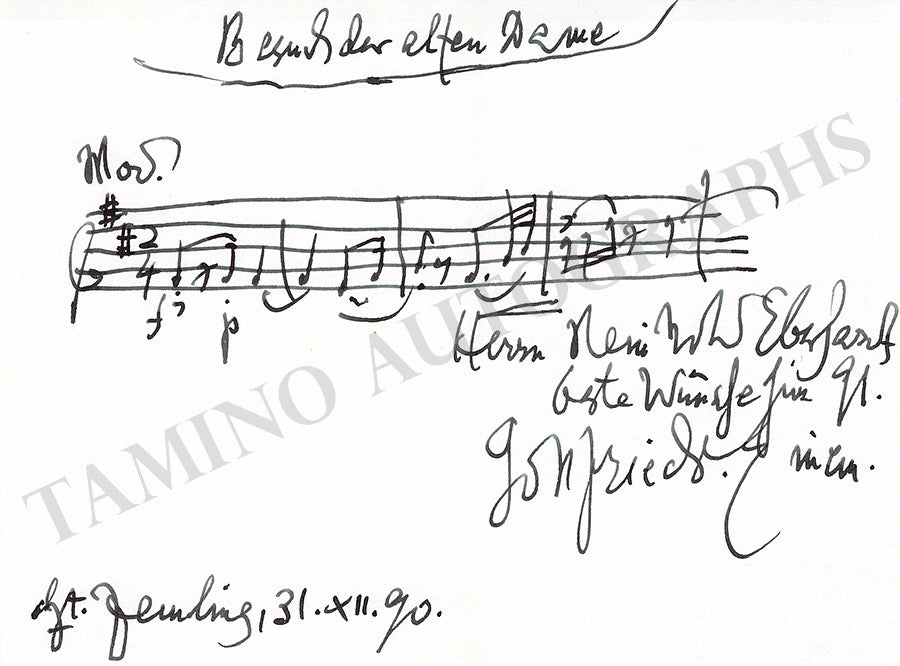 Besuch der alten Dame
Mod.
2
4
f
p
Herrn Reinhold Eberhardt
beste Wünsche für 91.
Gottfried v. Einem.
dzt. 31.XII.90.
TAMINO AUTOGRAPHS